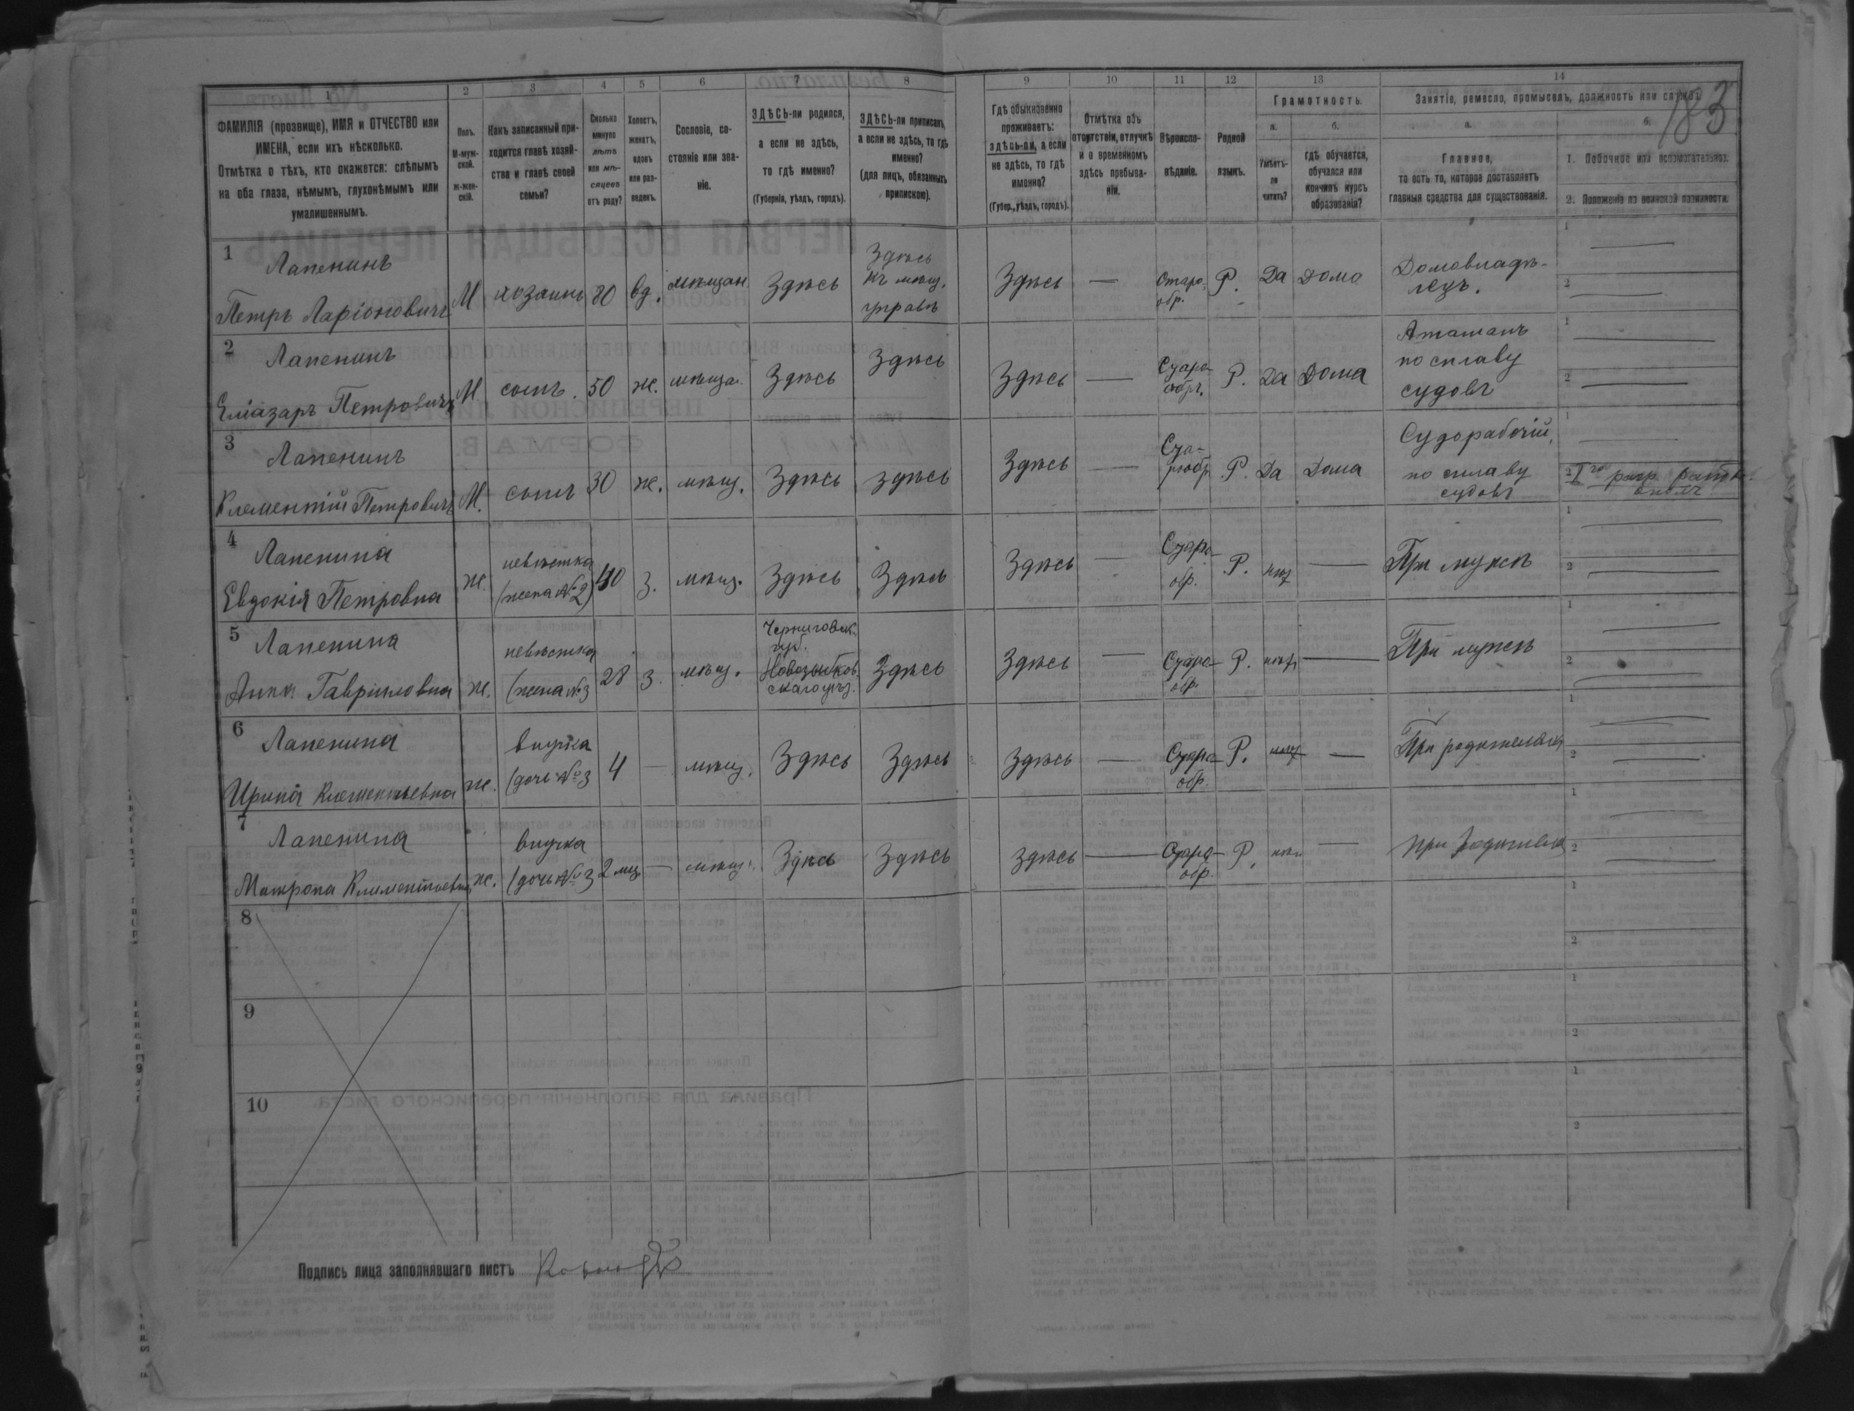 1 2 3 4 5 6 7 8 9 10 11 12 13 14
183
ФАМИЛІЯ (прозвище), ИМЯ и ОТЧЕСТВО или
ИМЕНА, если ихъ нѣсколько.
Отмѣтка о тѣхъ, кто окажется: слѣпымъ
на оба глаза, нѣмымъ, глухонѣмымъ или
умалишоннымъ.
Полъ.
М-муж-
ской.
Ж-жен-
скій.
Какъ записанный при-
ходится главѣ хозяй-
ства и главѣ своей
семьи?
Сколько
минуло
лѣтъ
или мѣ-
сяцевъ
отъ роду?
Холостъ,
женатъ,
вдовъ
или раз-
веденъ.
Сословіе, со-
стояніе или зва-
ніе.
ЗДѢСЬ-ли родился,
а если не здѣсь,
то гдѣ именно?
(Губернія, уѣздъ, городъ).
ЗДѢСЬ-ли приписанъ,
а если не здѣсь, то гдѣ
именно?
(для лицъ, обязанныхъ
припискою).
Гдѣ обыкновенно
проживаетъ:
здѣсь-ли, а если
не здѣсь, то гдѣ
именно?
(Губер., уѣздъ, городъ).
Отмѣтка объ
отсутствіи, отлучкѣ
и о временномъ
здѣсь пребыва-
ніи.
Вѣроиспо-
вѣданіе.
Родной
языкъ.
Грамотность.
а.
Умѣетъ-
ли
читать?
б.
гдѣ обучается,
обучался или
кончилъ курсъ
образованія?
Занятіе, ремесло, промыселъ, должность или служба.
а.
Главное,
то есть то, которое доставляетъ
главныя средства для существованія.
б.
1. Побочное или вспомогательное.
2. Положеніе по воинской повинности.
1 Лапенинъ
Петръ Ларіоновичъ М хозяинъ 80 вд. мѣщан Здѣсь Здѣсь
къ мѣщ.
управѣ Здѣсь — Старо-
обр. Р. Да Дома Домовладѣ-
лецъ.
2 Лапенинъ
Елиазаръ Петровичъ М сынъ. 50 ж. мѣщан. Здѣсь Здѣсь Здѣсь — Старо-
обр. Р. Да Дома Атаманъ
по сплаву
судовъ
3 Лапенинъ
Клементій Петровичъ М. сынъ 30 ж. мѣщ. Здѣсь здѣсь Здѣсь — Р. Да Дома Судорабочій,
по сплаву
судовъ
4 Лапенина
Евдокія Петровна ж. невѣстка
(жена №2) 40 з. мѣщ. Здѣсь Здѣсь Здѣсь — Старо-
обр. Р. нѣт — При мужѣ
5 Лапенина
Анна Гавриловна ж. невѣстка
(жена №3 28 з. мѣщ. Черниговск.
губ.
Новозыбков
скаго уѣз. Здѣсь Здѣсь — Старо-
обр. Р. нѣтъ — При мужѣ
6 Лапенина
Ирина Клементьевна ж. внучка
(дочь №3 4 — мѣщ. Здѣсь Здѣсь Здѣсь — Старо-
обр. Р. нѣт — При родителях
7 Лапенина
Матрона Клементьевна ж. внучка
(дочь №3 2 мѣс — мѣщ. Здѣсь Здѣсь здѣсь — Старо-
обр Р. нѣт — при родителях
8
9
10
Подпись лица заполнявшаго листъ